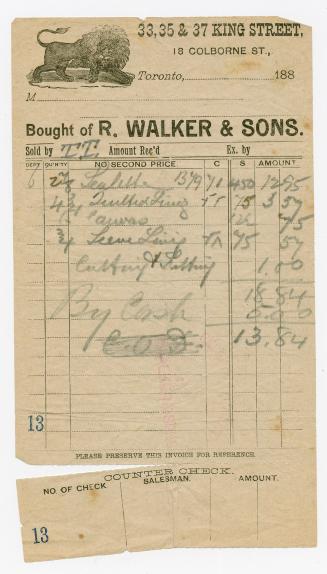 33, 35 & 37 KING STREET,
18 COLBORNE ST.,
Toronto, 188
M
Bought of R. WALKER & SONS.
Sold by TT Amount Rec'd Ex. by
DEPT QUNTITY NO SECOND PRICE. C S AMOUNT
8 2 7/8 Sealette 1379 71 450 1295
4 3/4 Quilted Lining TT 75 3 57
Canvas 75
3/4 Sleeve Lining TA 75 57
Cutting & Fitting 1.00
18.84
By Cash 5.00
C.O.D. 13.84
13
PLEASE PRESERVE THIS INVOICE FOR REFERENCE.
COUNTER CHECK.
NO. OF CHECK SALESMAN. AMOUNT.
13